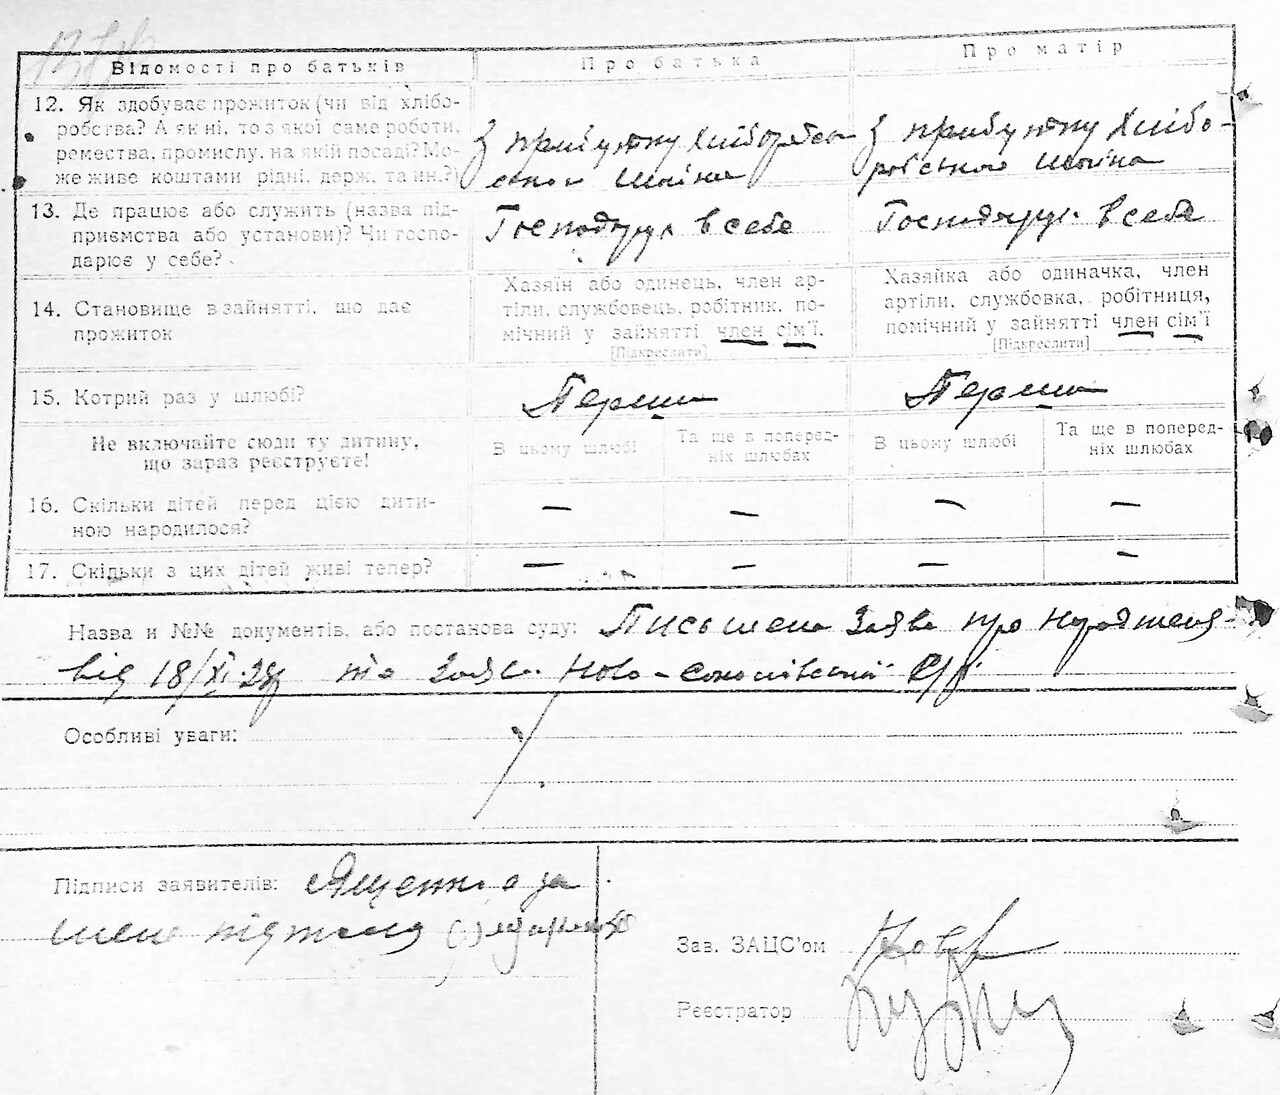 Відомості про батьків
Про батька
Про матір
12. Як здобуває прожиток (чи від хлібо-
робства? А як ні, то з якої саме роботи,
ремества, промислу, на якій посаді? Мо-
же живе коштами рідні, держ. та ин.?)
З прибутку
З прибутку хлібо-
13. Де працює або служить (назва під-
приємства або установи)? Чи госпо-
дарює у себе?
Господарює в себе
Господарює в себе
14. Становище в зайнятті, що дає
прожиток
Хазяїн або одинець, член ар-
тіли, службовець, робітник, по-
мічний у зайнятті член сім'ї.
[Підкреслити]
Хазяйка або одиначка, член
артіли, службовка, робітниця,
помічний у зайнятті член сім'ї
[Підкреслити]
15. Котрий раз у шлюбі?
Перший
Перший
Не включайте сюди ту дитину,
що зараз реєструєте!
В цьому шлюбі
Та ще в поперед-
ніх шлюбах
В цьому шлюбі
Та ще в поперед-
ніх шлюбах
16. Скільки дітей перед цією дити-
ною народилося?
— — — —
17. Скільки з цих дітей живі тепер?
— — — —
Назва и №№ документів, або постанова суду: Письмена заява про народження
від 18/XI-28р та заява Ново-
Особливі уваги:
Підписи заявителів: Яценко а за
Зав. ЗАЦС'ом
Реєстратор